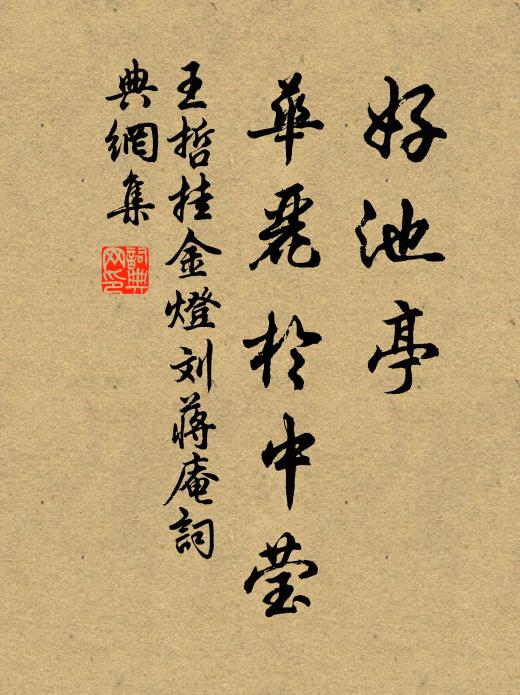 好池亭
華麗於中莹
王哲挂金燈刘蔣庵詞
典網集
詞典网印